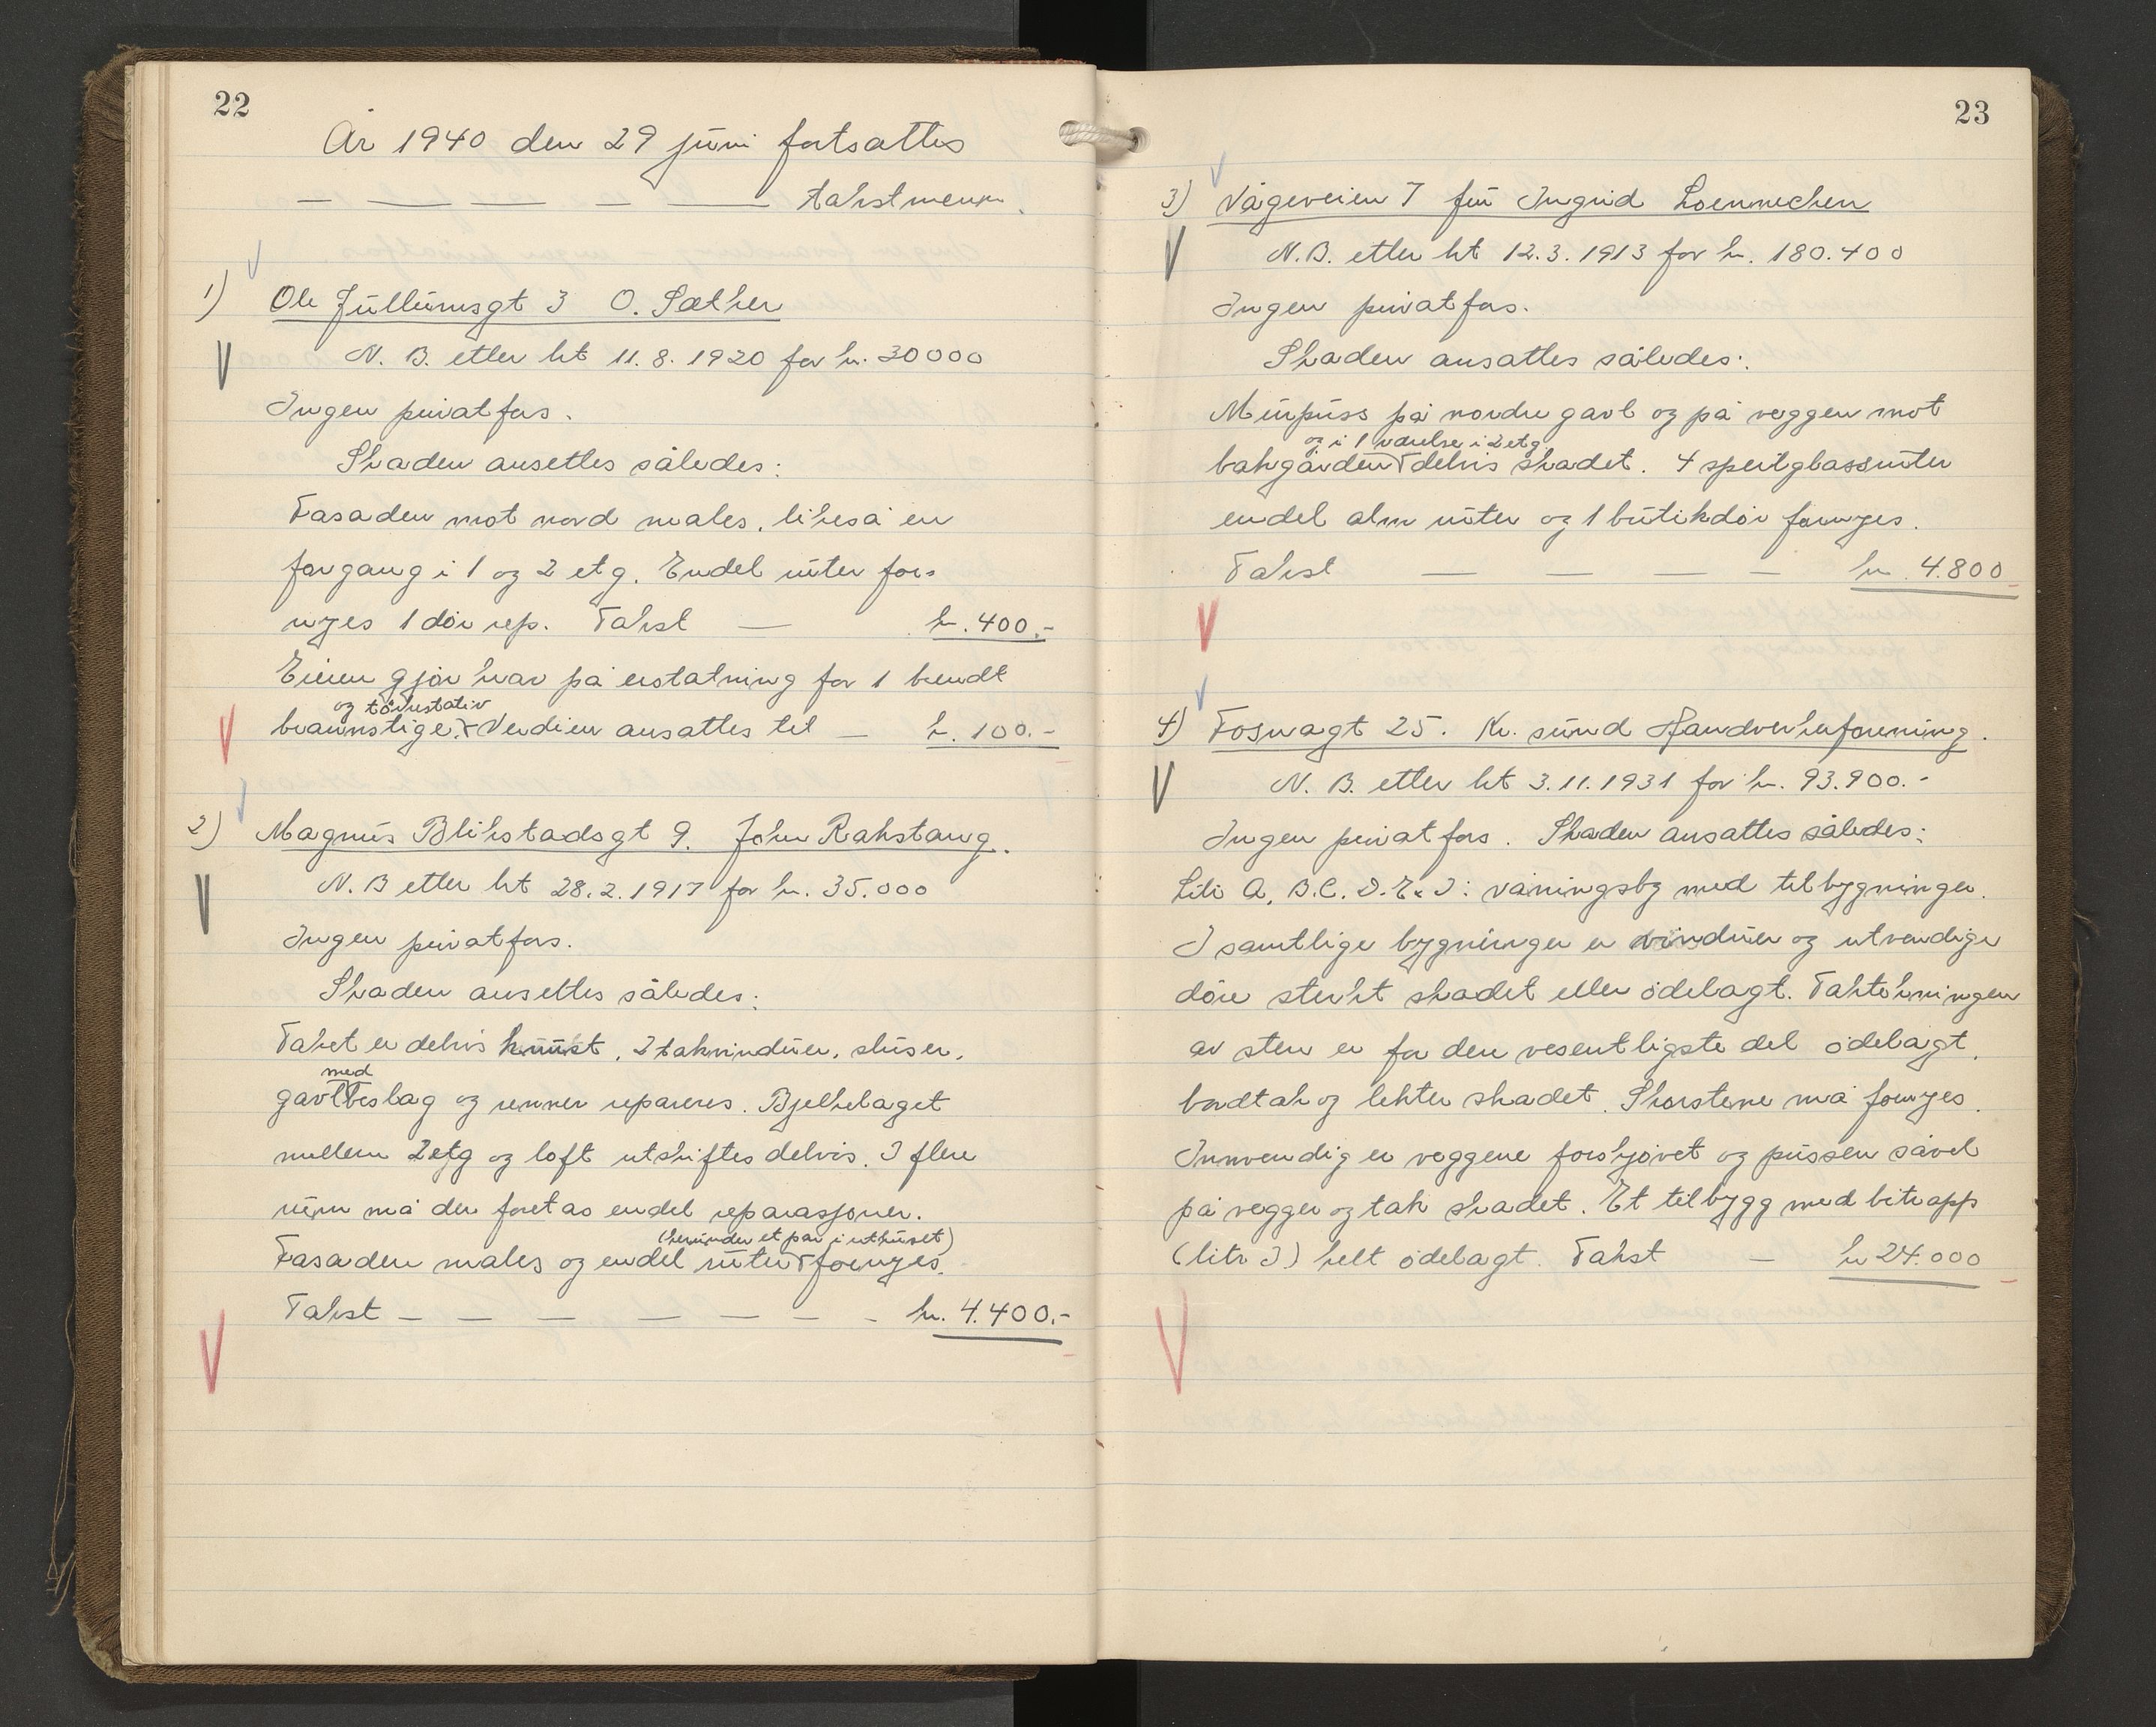 22
År 1940 den 29 juni fortsattes
— — — — — takstmenn.
1) Ole Jullumsgt 3 O. Sæther
N. B. etter kt 11. 8. 1920 for kr. 30000
Ingen privat fors.
Skaden ansettes således:
Fasaden mot nord males, likeså en
forgang i 1 og 2 etg. Endel ruter for-
nyes 1 dör rep. Takst — kr. 400.-
Eieren gjör krav på erstatning for 1 brendt
og törkestativ
brannstige. Verdien ansattes til — kr. 100.-
2) Magnus Blikstadsgt 9. John Rakstang.
N. B etter kt 28. 2. 1917 for kr. 35.000
Ingen privat fors.
Skaden ansettes således:
Taket er delvis knust, 2 takvinduer, sluser,
med
gavlbeslag og renner repareres. Bjelkelaget
mellem 2 etg og loft utskiftes delvis. I flere
rum må der foretas endel reparasjoner.
(herunder et par i uthuset)
Fasaden males og endel ruter fornyes.
Takst — — — — — — - kr. 4.400.-
23
3) Vågeveien 7 fru Ingrid Loennechen
N. B. etter kt 12. 3. 1913 for kr. 180.400
Ingen privat fors.
Skaden ansattes således:
Murpuss på nordre gavl og på veggen mot
og i 1 værelse i 2 etg
bakgården delvis skadet. 4 speilglassruter
endel alm ruter og 1 butikdör fornyes.
Takst — — — — kr. 4.800
4) Fosnagt 25. Kr. sund Handverkerforening.
N. B. etter kt 3. 11. 1931 for kr. 93.900.-
Ingen privat fors. Skaden ansattes således:
Litr A, B. C. D. E. J: våningsbg med tilbygninger.
I samtlige bygninger er vinduer og utvendige
döre sterkt skadet eller ödelagt. Taktekningen
av sten er for den vesentligste del ödelagt,
bordtak og lekter skadet. Skorstene må fornyes.
Innvendig er veggene forskjövet og pussen såvel
på vegger og tak skadet. Et tilbygg med bitrapp
(litr J) helt ödelagt. Takst — kr 24.000